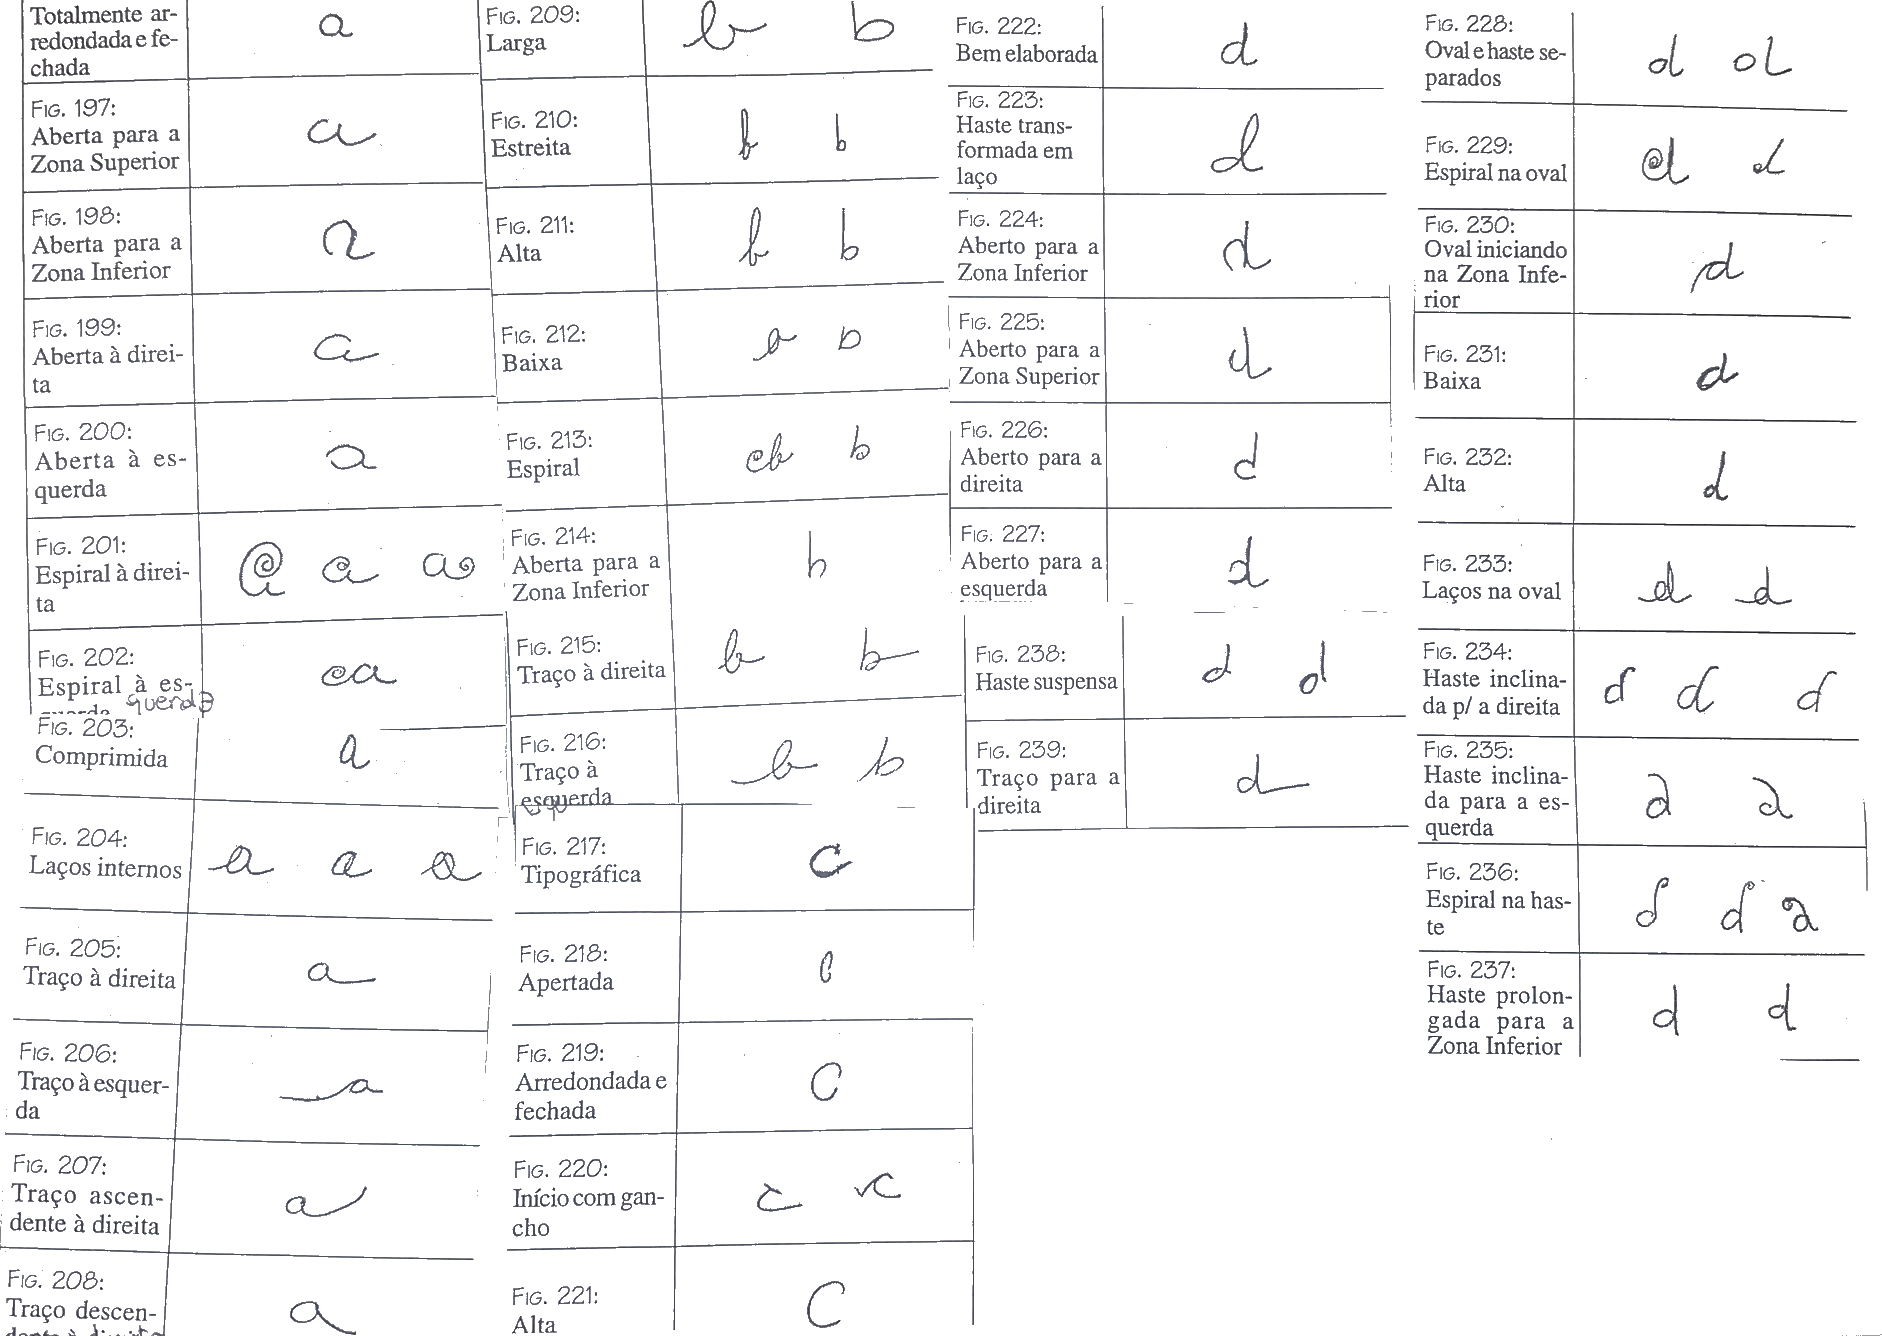 Totalmente ar-
redondada e fe-
chada
a
FIG. 197:
Aberta para a
Zona Superior
a
FIG. 198:
Aberta para a
Zona Inferior
a
FIG. 199:
Aberta à direi-
ta
a
FIG. 200:
Aberta à es-
querda
a
FIG. 201:
Espiral à direi-
ta
a a a
FIG. 202:
Espiral à es-
querda
a
FIG. 203:
Comprimida
a
FIG. 204:
Laços internos
a a a
FIG. 205:
Traço à direita
a
FIG. 206:
Traço à esquer-
da
a
FIG. 207:
Traço ascen-
dente à direita
a
FIG. 208:
Traço descen-
dente à direita
a
FIG. 209:
Larga
b b
FIG. 210:
Estreita
b b
FIG. 211:
Alta
b b
FIG. 212:
Baixa
b b
FIG. 213:
Espiral
b b
FIG. 214:
Aberta para a
Zona Inferior
b
FIG. 215:
Traço à direita
b b
FIG. 216:
Traço à
esquerda
b b
FIG. 217:
Tipográfica
c
FIG. 218:
Apertada
c
FIG. 219:
Arredondada e
fechada
c
FIG. 220:
Início com gan-
cho
c c
FIG. 221:
Alta
c
FIG. 222:
Bem elaborada
d
FIG. 223:
Haste trans-
formada em
laço
d
FIG. 224:
Aberto para a
Zona Inferior
d
FIG. 225:
Aberto para a
Zona Superior
d
FIG. 226:
Aberto para a
direita
d
FIG. 227:
Aberto para a
esquerda
d
FIG. 238:
Haste suspensa
d d
FIG. 239:
Traço para a
direita
d
FIG. 228:
Oval e haste se-
parados
d d
FIG. 229:
Espiral na oval
d d
FIG. 230:
Oval iniciando
na Zona Infe-
rior
d
FIG. 231:
Baixa
d
FIG. 232:
Alta
d
FIG. 233:
Laços na oval
d d
FIG. 234:
Haste inclina-
da p/ a direita
d d d
FIG. 235:
Haste inclina-
da para a es-
querda
d d
FIG. 236:
Espiral na has-
te
d d d
FIG. 237:
Haste prolon-
gada para a
Zona Inferior
d d